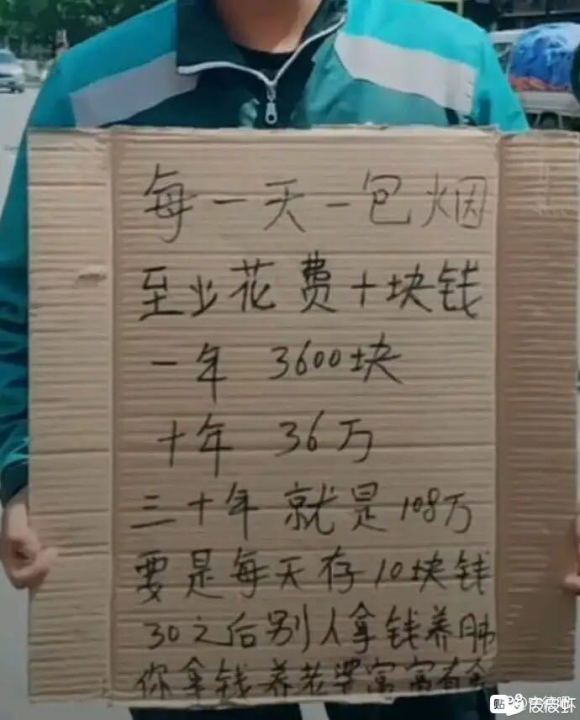 每一天一包烟
至少花费十块钱
一年 3600块
十年 36万
三十年 就是108万
要是每天存10块钱
30之后别人拿钱养肺
你拿钱养老
贴